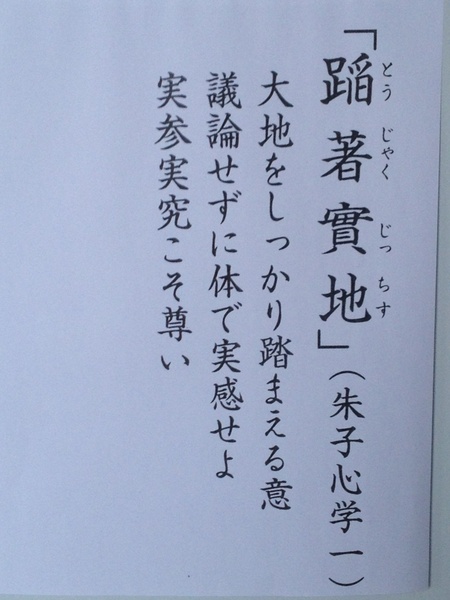 「蹈著實地」(朱子心学一)
とうじゃくじっちす
大地をしっかり踏まえる意
議論せずに体で実感せよ
実参実究こそ尊い